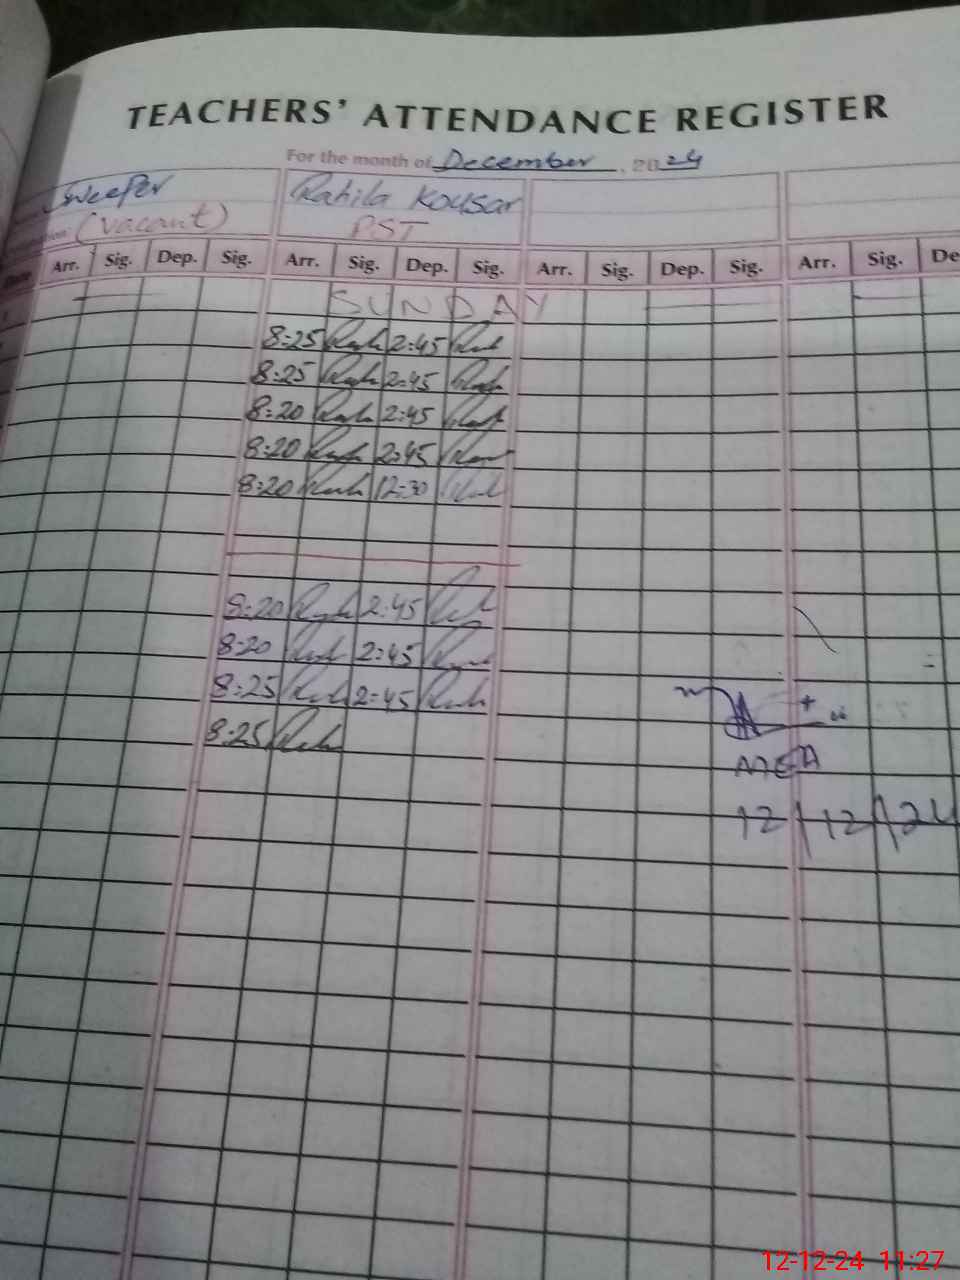 TEACHERS' ATTENDANCE REGISTER
For the month of December, 2024
Sweeper Rahila Kousar
(vacant) PST
Arr. Sig. Dep. Sig. Arr. Sig. Dep. Sig. Arr. Sig. Dep. Sig. Arr. Sig. De
SUNDAY
8:25 2:45
8:25 2:45
8:20 2:45
8:20 2:45
8:20 12:30
8:20 2:45
8:20 2:45
8:25 2:45
8:25
12/12/24
12-12-24 11:27